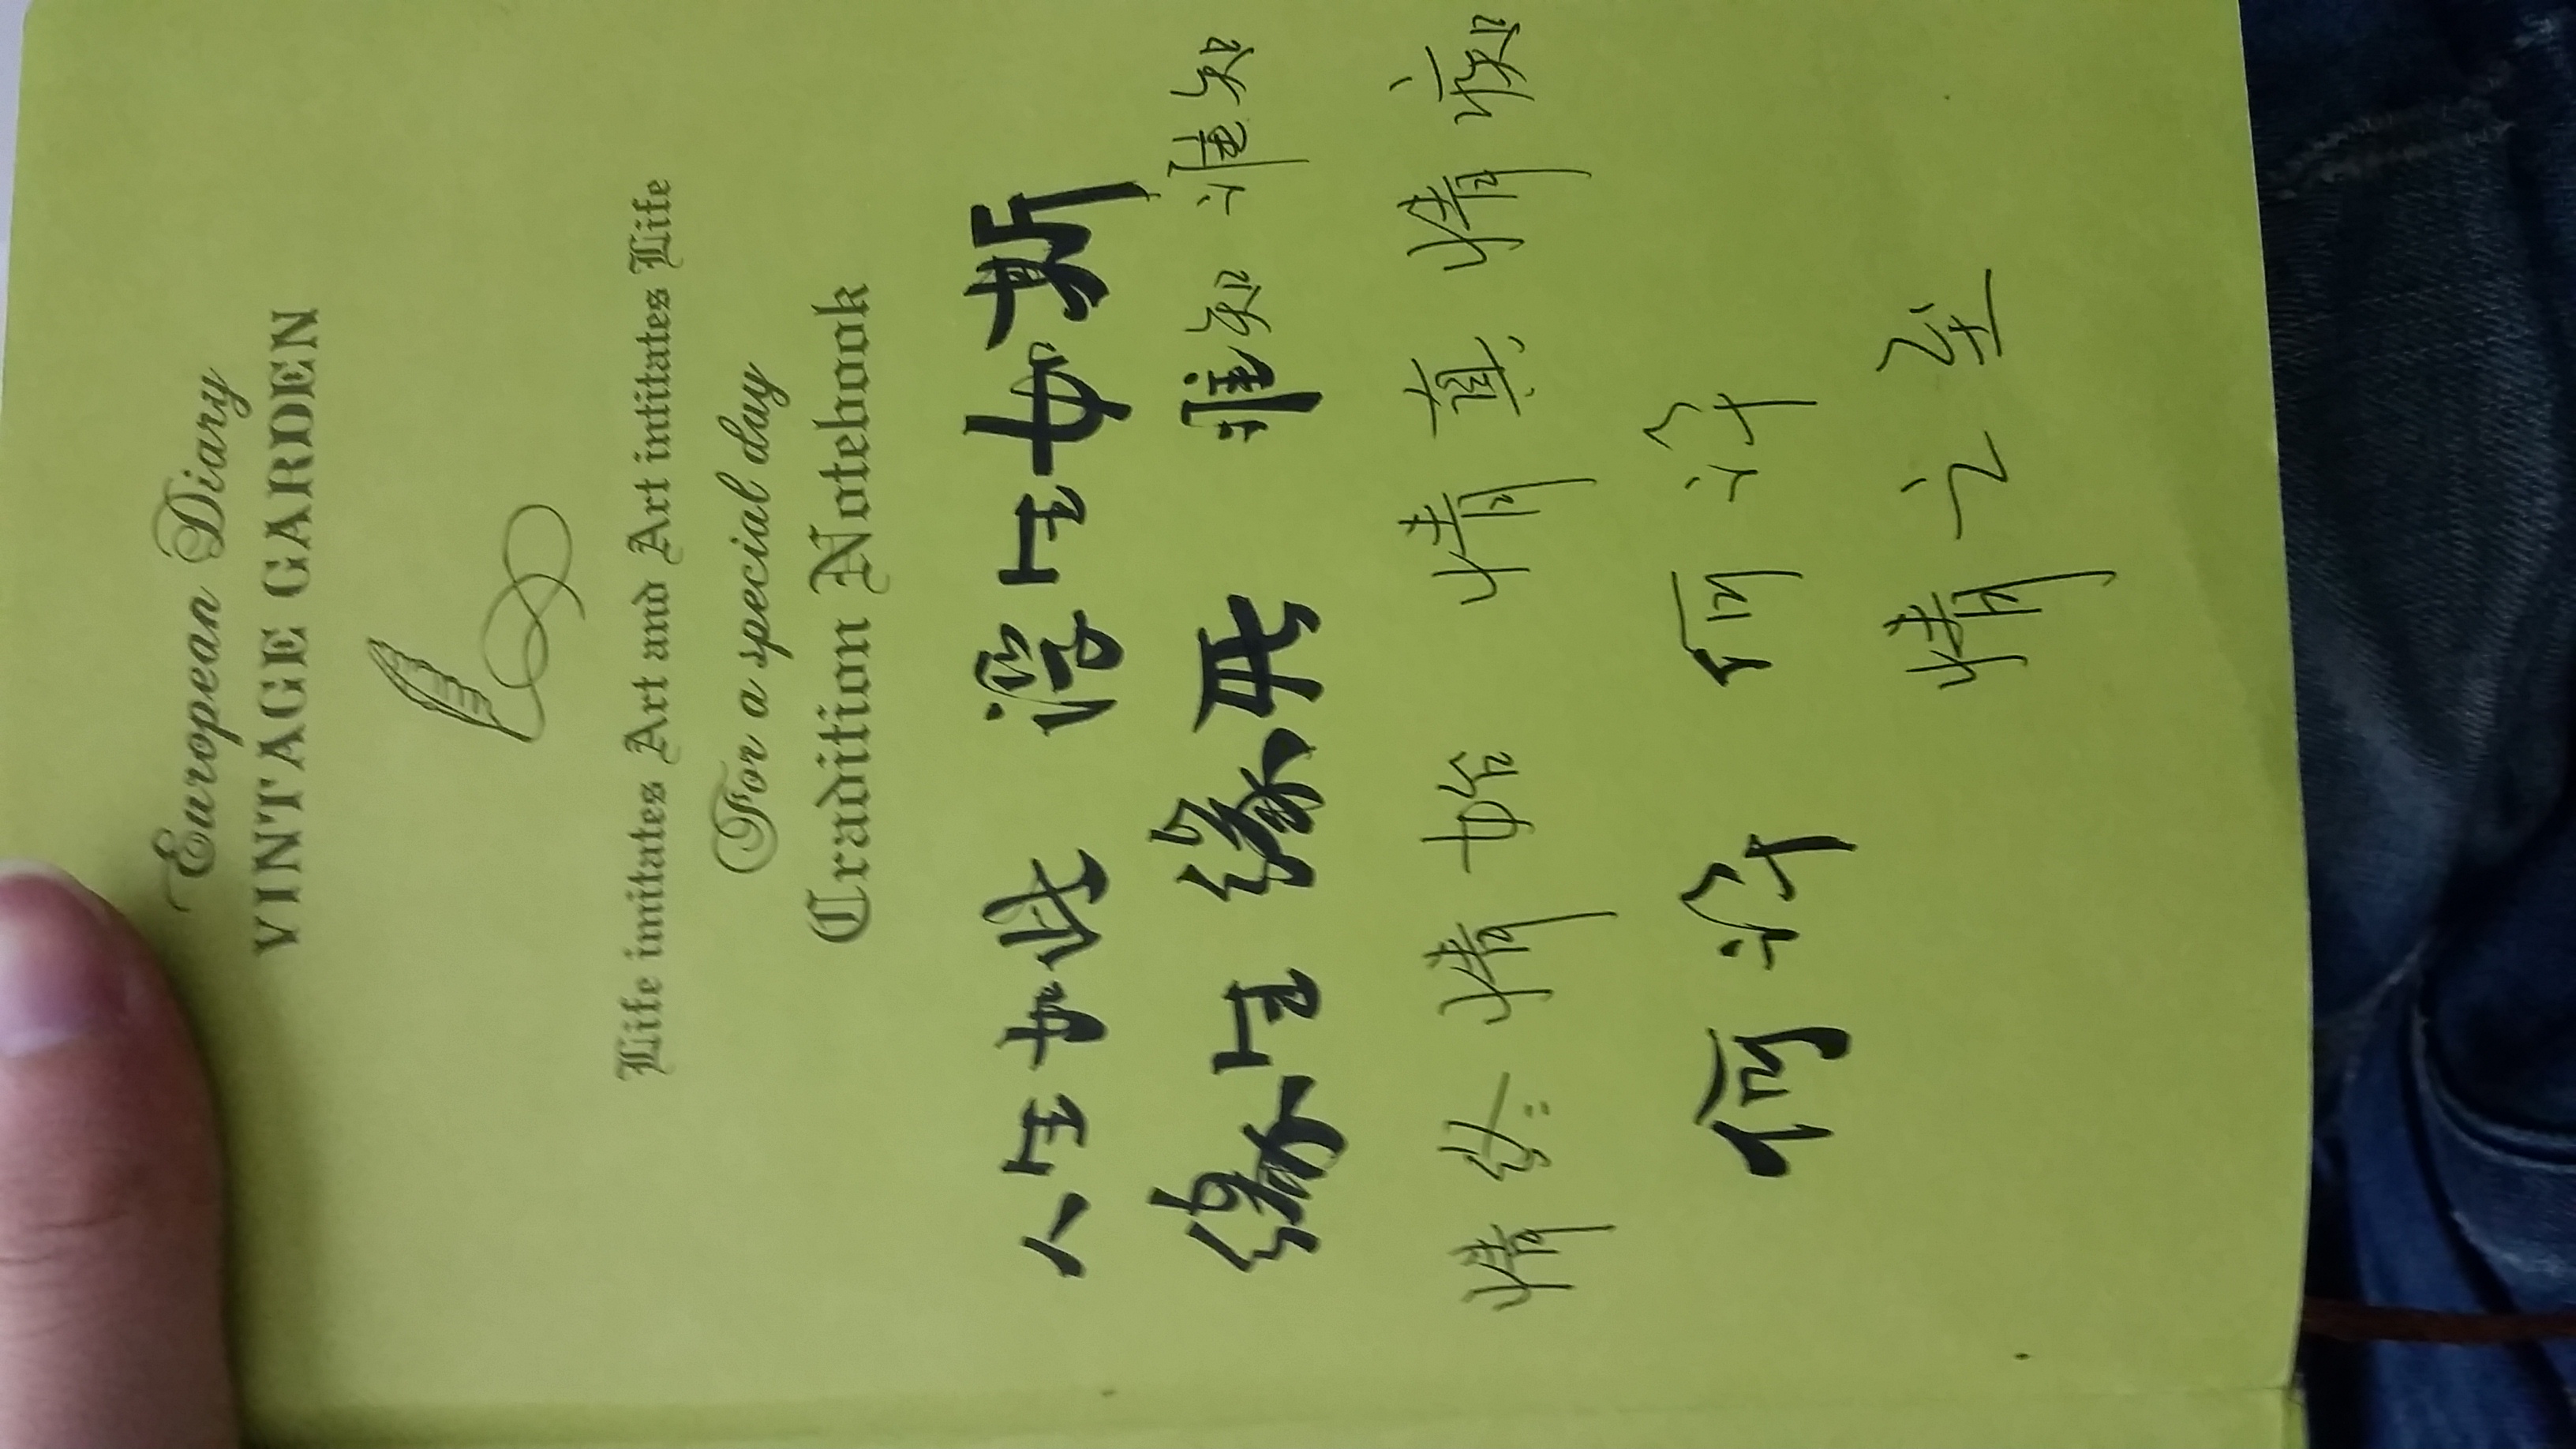 European Diary
VINTAGE GARDEN
Life imitates Art and Art intitates Life
For a special day
Cradition Notebook
人生如此 浮生如斯
缘生缘死 谁知谁知
情终情始 情真情痴
何许 何许
情之至